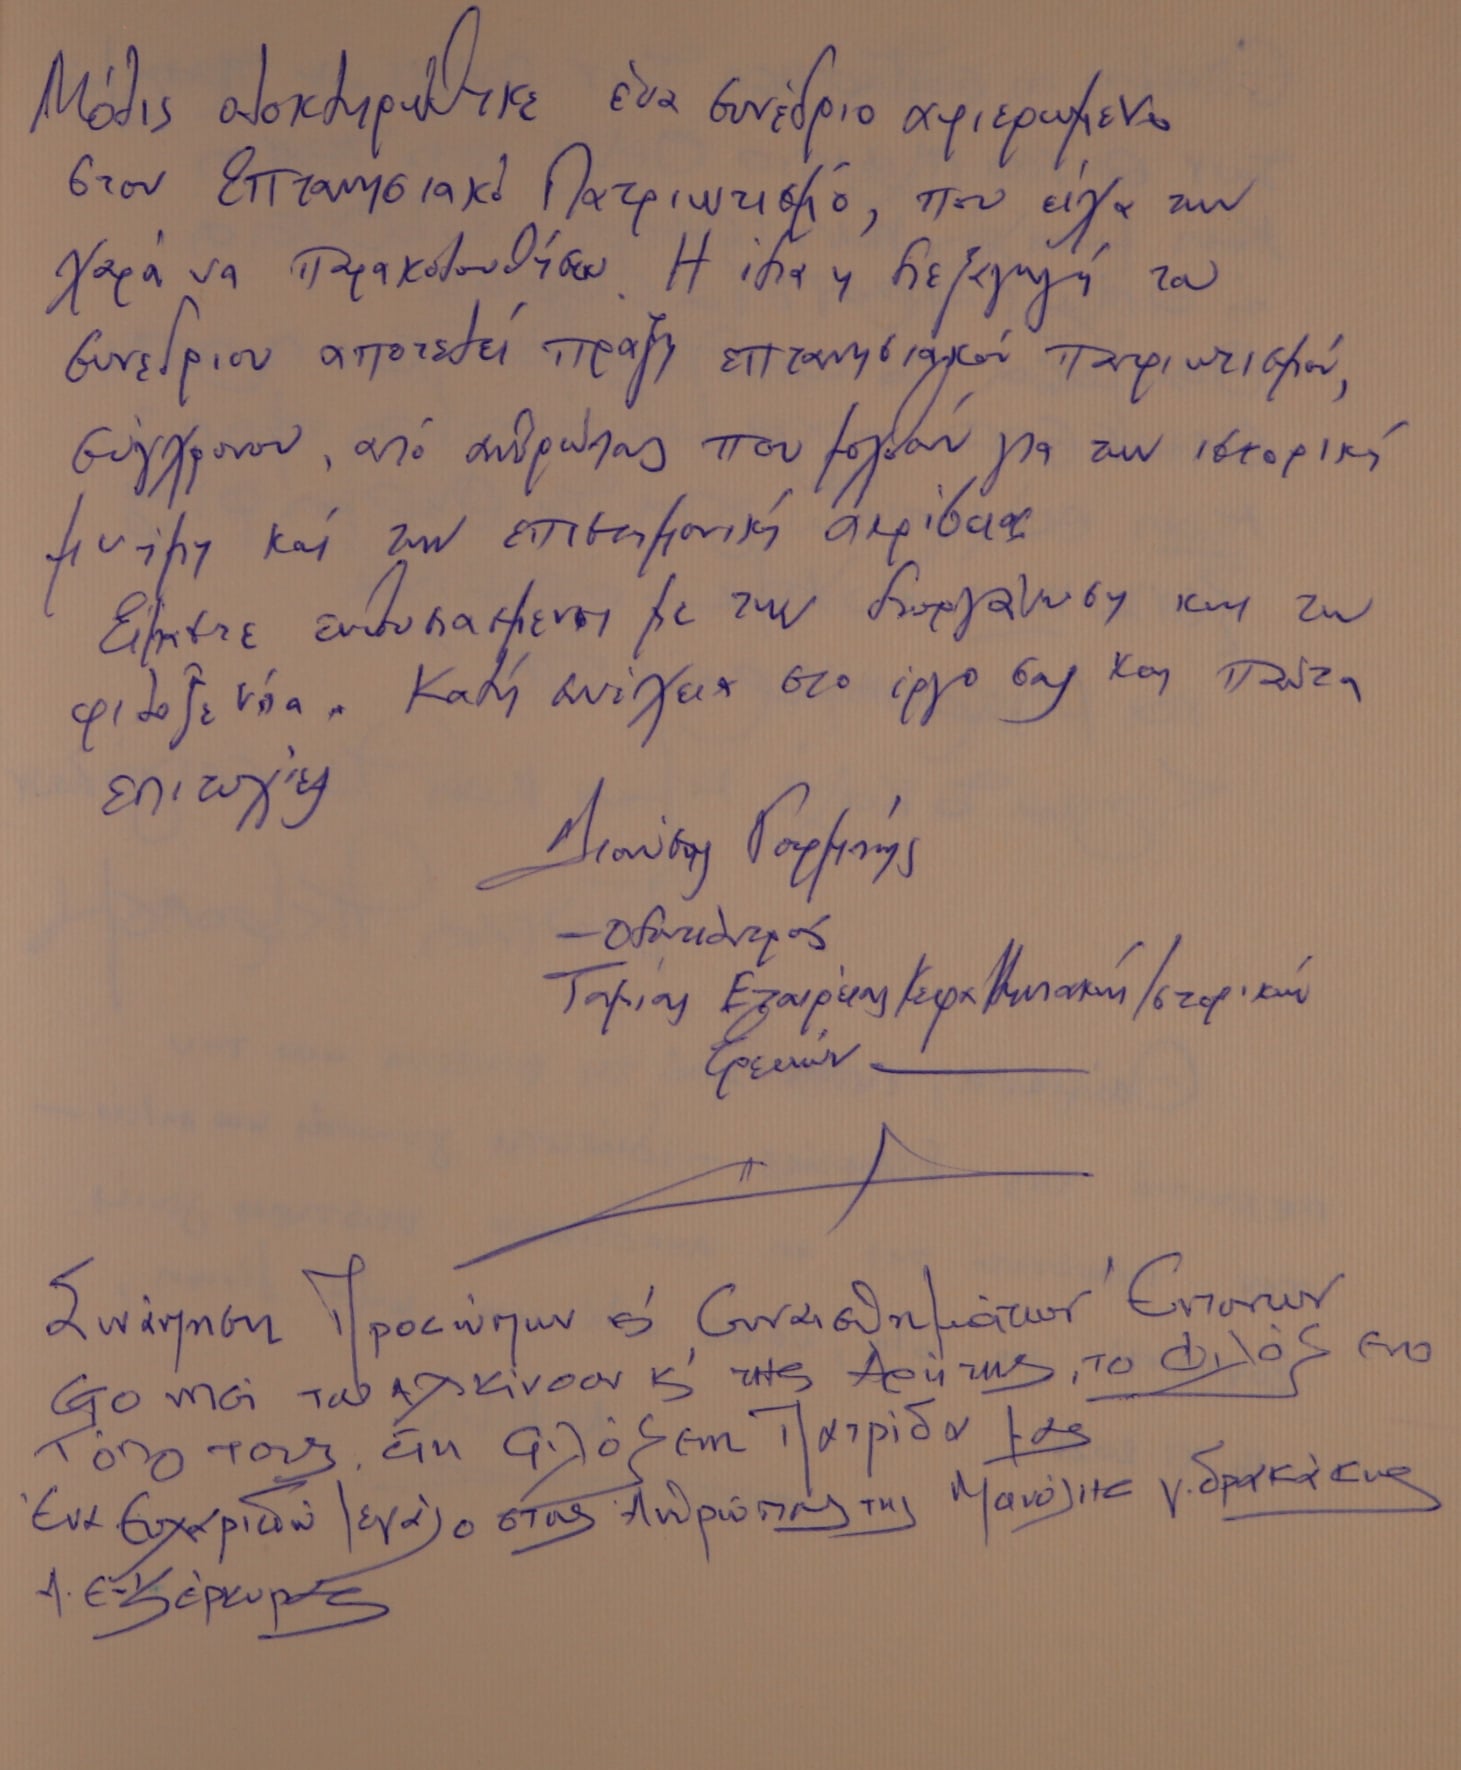 Μόλις ολοκληρώθηκε ένα συνέδριο αφιερωμένο
στον Επτανησιακό Πατριωτισμό, που είχα την
χαρά να παρακολουθήσω. Η ίδια η διεξαγωγή του
συνεδρίου αποτελεί πράξη επτανησιακού πατριωτισμού,
σύγχρονου, από ανθρώπους που μοχθούν για την ιστορική
μνήμη και την επιστημονική ακρίβεια
Είμαστε ενθουσιασμένοι με την διοργάνωση και την
φιλοξενία. Καλή συνέχεια στο έργο σας και πάντα
επιτυχίες
Διονύσης Γαρμπής
– Οδοντίατρος
Ταμίας Εταιρείας Κεφαλληνιακών Ιστορικών
Ερευνών
Συνάντηση Προσώπων κ' Συναισθημάτων Έντονων
Στο νησί του Αλκίνοου κ' της Αρήτης, το Φιλόξενο
Τόπο τους, στη Φιλόξενη Πατρίδα μας
Ένα Ευχαριστώ Μεγάλο στους Ανθρώπους της Μανόλης γ. δρακάκης
Κέρκυρας